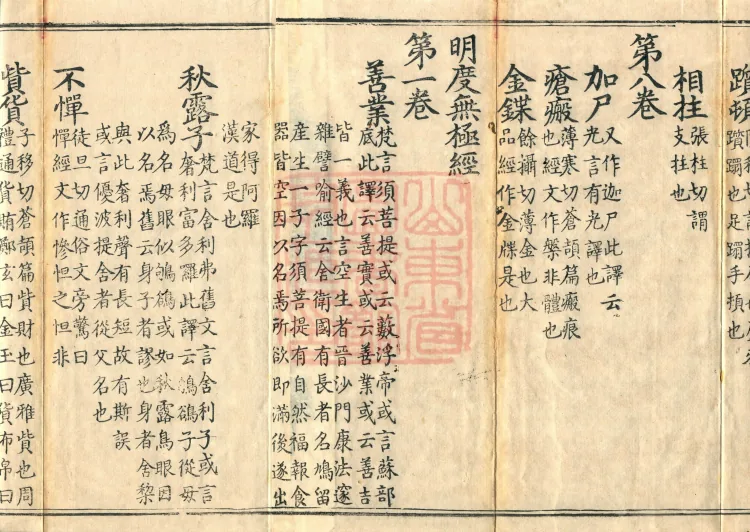 相拄
張柱切謂
支拄也
第八卷
加尸
又作迦尸此譯云
光言有光譯也
瘡瘢
薄寒切蒼頡篇瘢痕
也經文作槃非體也
金鍱
餘攝切薄金也大
品經作金牒是也
明度無極經
第一卷
善業
梵言須菩提或云藪浮帝或言蘇部
底此譯云善實或云善業或云善吉
皆一義也言空生者晉沙門康法邃
雜譬喻經云舍衛國有長者名鳩留
産生一子字須菩提有自然福報食
器皆空因以名焉所欲即滿後遂出
家得阿羅
漢道是也
秋露子
梵言舍利弗舊文言舍利子或言
奢利富多羅此譯云鴝鵒子從母
爲名母眼似鴝鵒或如秋露鳥眼因
以名焉舊云身子者謬也身者舍黎
與此奢利聲有長短故有斯誤
或言優波提舍者從父名也
不憚
徒旦切通俗文旁驚曰
憚經文作慘怛之怛非
貲貨
子移切蒼頡篇貲財也廣雅貲也周
禮通貨賄鄭玄曰金玉曰貨布帛曰